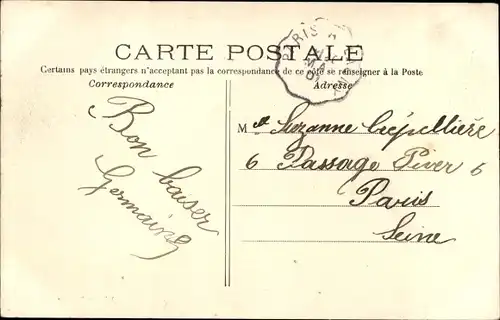 CARTE POSTALE
Certains pays étrangers n'acceptant pas la correspondance de ce côté se renseigner à la Poste
Correspondance
Adresse
Bon baiser
Germaine
Mlle Suzanne
6 Passage Piver 6
Paris
Seine
PARIS